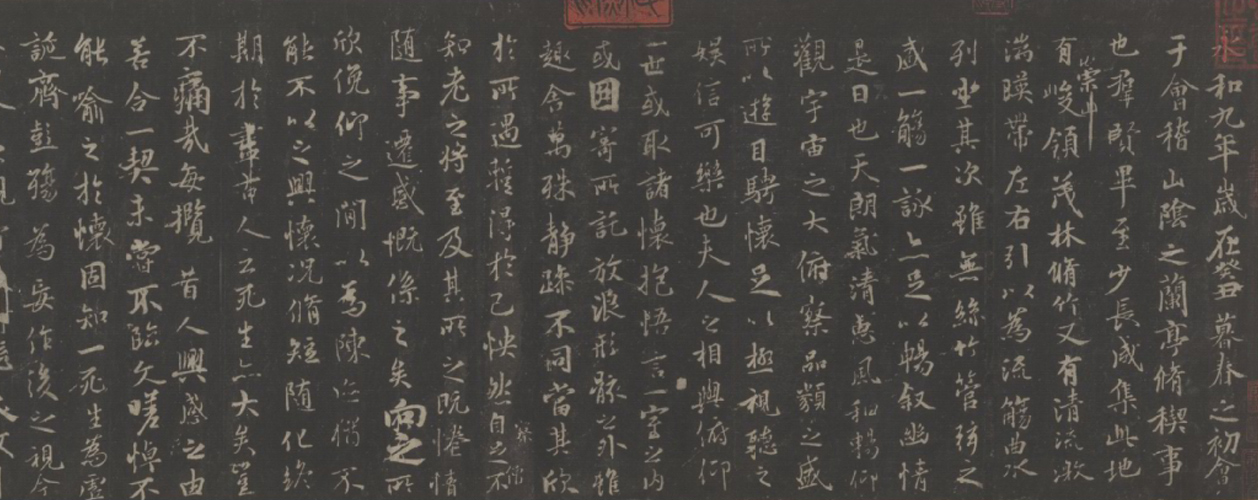 永和九年歲在癸丑暮春之初會
于會稽山陰之蘭亭脩禊事
也羣賢畢至少長咸集此地
有崇山峻領茂林脩竹又有清流激
湍暎帶左右引以為流觴曲水
列坐其次雖無絲竹管弦之
盛一觴一詠亦足以暢敘幽情
是日也天朗氣清惠風和暢仰
觀宇宙之大俯察品類之盛
所以遊目騁懷足以極視聽之
娛信可樂也夫人之相與俯仰
一世或取諸懷抱悟言一室之內
或因寄所託放浪形骸之外雖
趣舍萬殊靜躁不同當其欣
於所遇蹔得於己怏然自足不
知老之將至及其所之既惓情
隨事遷感慨係之矣向之所
欣俛仰之閒以為陳迹猶不
能不以之興懷況脩短隨化終
期於盡古人云死生亦大矣豈
不痛哉每攬昔人興感之由
若合一契未嘗不臨文嗟悼不
能喻之於懷固知一死生為虛
誕齊彭殤為妄作後之視今